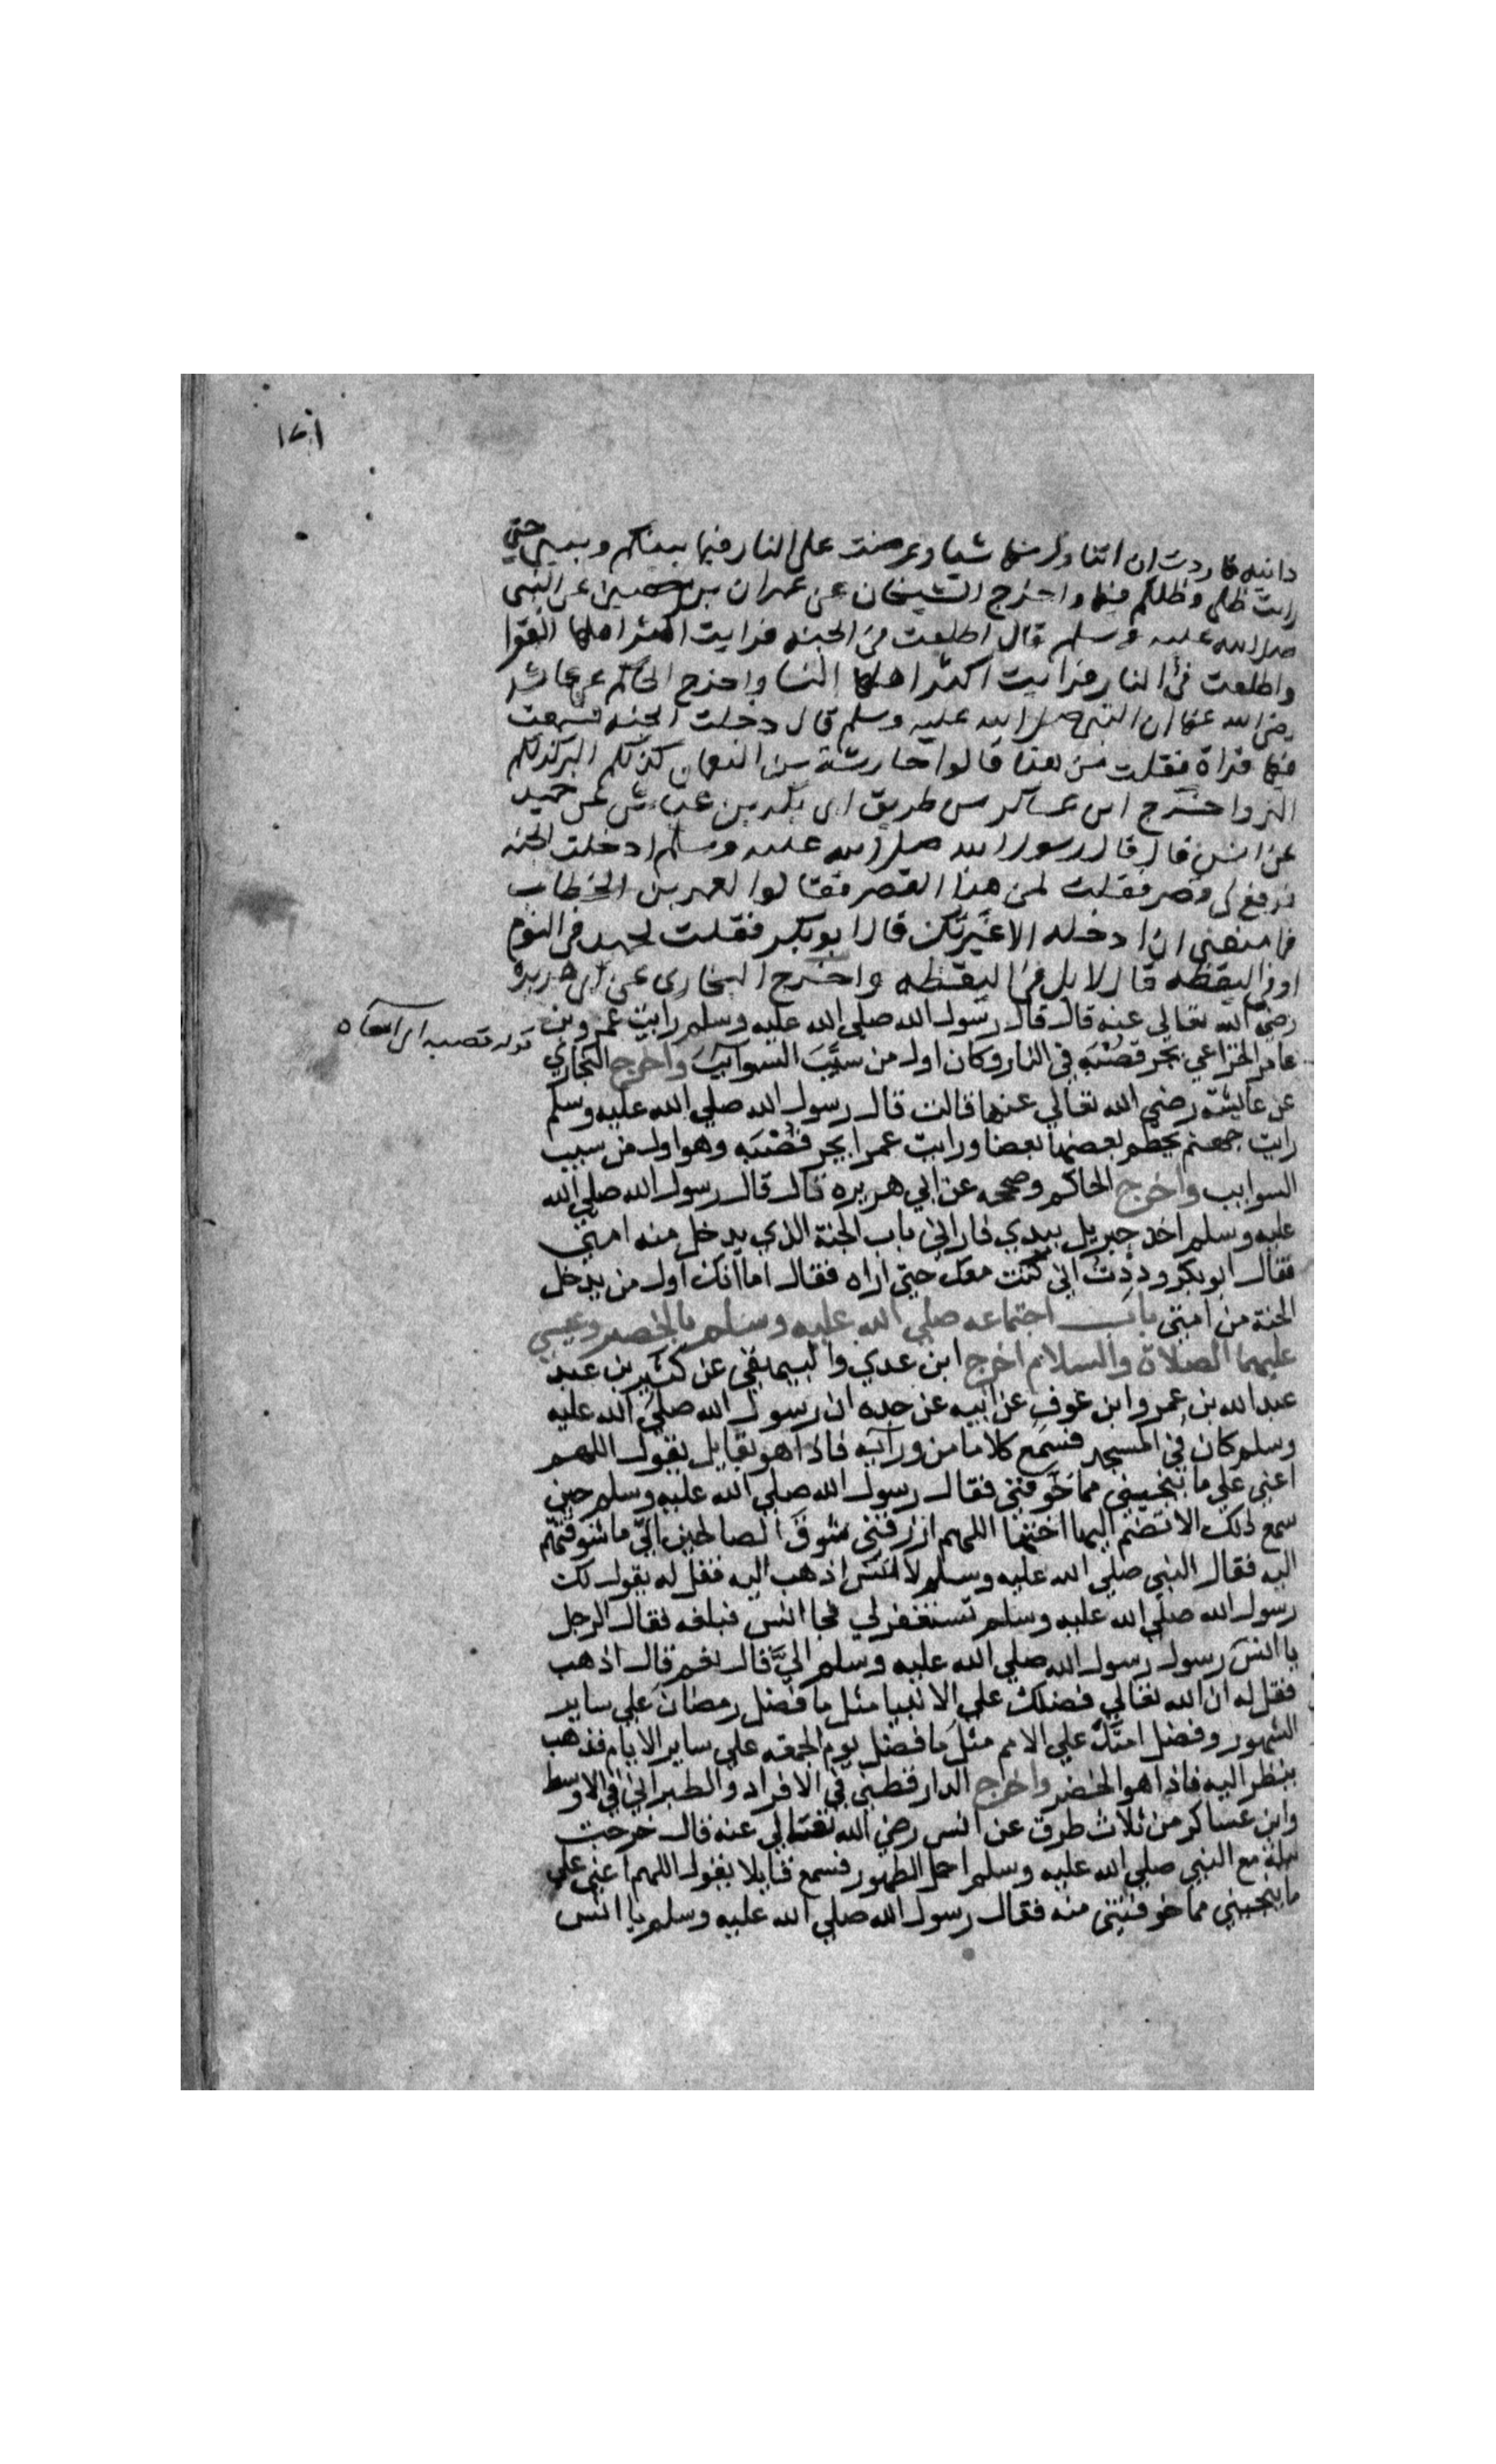 ١٧١
دانيه فاردت ان اتناول منها شيا وعرضت على النار فيما بينكم وبيني حتى
رايت ظلي وظلكم فيها واخرج الشيخان عن عمران بن حصين عن النبي
صلى الله عليه وسلم قال اطلعت في الجنه فرايت اكثر اهلها الفقرا
واطلعت في النار فرايت اكثر اهلها النسا واخرج الحاكم عن عائشه
رضي الله عنها ان النبي صلى الله عليه وسلم قال دخلت الجنه فسمعت
فيها قراة فقلت من هذا قالوا حارثة بن النعمان كذلكم البر كذلكم
البر واخرج ابن عساكر من طريق ابي بكر بن عياش عن حميد
عن انس قال قال رسول الله صلى الله عليه وسلم ادخلت الجنه
فرفع لي قصر فقلت لمن هذا القصر فقالوا لعمر بن الخطاب
فما منعني ان ادخله الا غيرتك قال ابو بكر فقلت لحميد في النوم
او في اليقظه قال لا بل في اليقظه واخرج البخاري عن ابي هريرة
رضي الله تعالي عنه قال قال رسول الله صلي الله عليه وسلم رايت عمرو بن
قوله قصبه اي امعاه
عامر الخزاعي يجر قصْبَه في النار وكان اول من سيَّبَ السوايبَ واخرج البخاري
عن عائشة رضي الله تعالي عنها قالت قال رسول الله صلي الله عليه وسلم
رايت جهنم يحطم بعضها بعضا ورايت عمرا يجر قصْبَه وهو اول من سيب
السوايب واخرج الحاكم وصححه عن ابي هريره قال قال رسول الله صلي الله
عليه وسلم اخذ جبريل بيدي فاراني باب الجنة الذي يدخل منه امتي
فقال ابو بكر وددت اني كنت معك حتي اراه فقال اما انك اول من يدخل
الجنة من امتي باب اجتماعه صلي الله عليه وسلم بالخضر وعيسي
عليهما الصلاة والسلام اخرج ابن عدي والبيهقي عن كثير بن عبد
عبد الله بن عمرو ابن عوف عن ابيه عن جده ان رسول الله صلي الله عليه
وسلم كان في المسجد فسمع كلاما من ورآيه فاذا هو بقايل يقول اللهم
اعني علي ما ينجيني مما خوفتني فقال رسول الله صلي الله عليه وسلم حين
سمع ذلك الا تضم اليها اختها اللهم ارزقني شوق الصالحين الي ما شوقتهم
اليه فقال النبي صلي الله عليه وسلم لانس اذهب اليه فقل له يقول لك
رسول الله صلي الله عليه وسلم تستغفر لي فجا انس فبلغه فقال الرجل
يا انس رسول رسول الله صلي الله عليه وسلم اليَّ قال نعم قال اذهب
فقل له ان الله تعالي فضلك علي الانبيا مثل ما فضل رمضان علي ساير
الشهور وفضل امتك علي الامم مثل ما فضل يوم الجمعه علي ساير الايام فذهب
ينظر اليه فاذا هو الخضر واخرج الدارقطني في الافراد والطبراني في الاوسط
وابن عساكر من ثلاث طرق عن انس رضي الله تعالي عنه قال خرجت
ليلة مع النبي صلي الله عليه وسلم احمل الطهور فسمع قايلا يقول اللهم اعني علي
ما ينجيني مما خوفتني منه فقال رسول الله صلي الله عليه وسلم يا انس